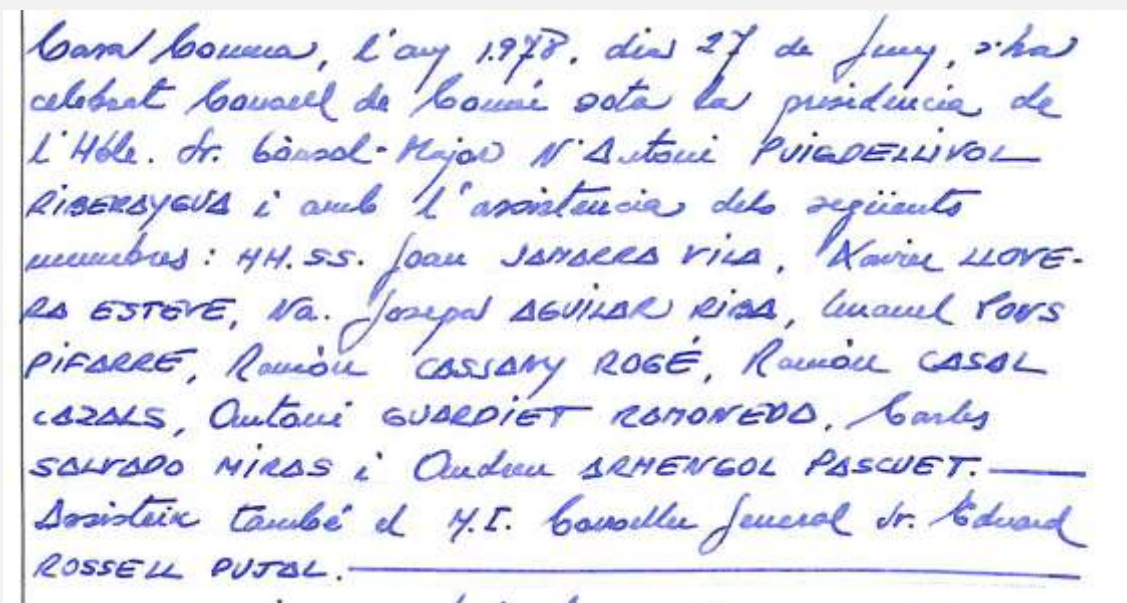 Casa Comuna, l'any 1.978, dia 27 de Juny, s'ha
celebrat Consell de Comú sota la presidència de
l'Hble. Sr. Cònsol-Major N'Antoni PUIGDELLIVOL
RIBERAYGUA i amb l'assistencia dels següents
membres: HH.SS. Joan SAMARRA VILA, Xavier LLOVE-
RA ESTEVE, Na. Josepa AGUILAR RIBA, Emanuel PONS
PIFARRE, Ramòn CASSANY ROGÉ, Ramòn CASAL
CAZALS, Antoni GUARDIET RAMONEDA, Carles
SALVADO MIRAS i Andreu ARMENGOL PASCUET.
Assisteix també el M.I. Conseller General Sr. Eduard
ROSSELL PUJAL.